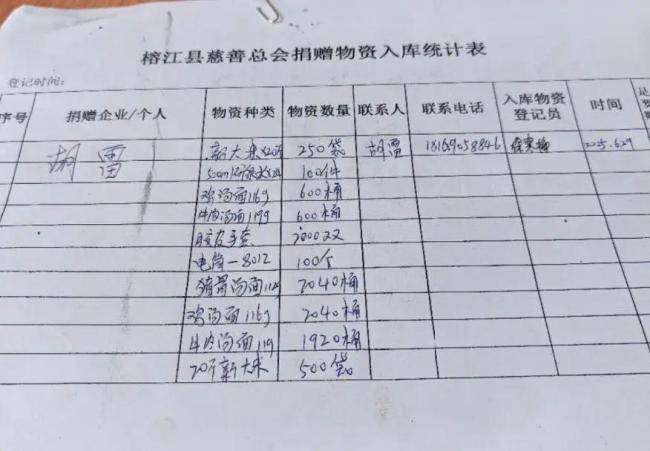 榕江县慈善总会捐赠物资入库统计表
登记时间:
序号 捐赠企业/个人 物资种类 物资数量 联系人 联系电话 入库物资登记员 时间
胡雷 新大米 250袋 胡雷 18169058846 2025.6.29
500ml 100件
鸡汤面116g 600桶
牛肉汤面119g 600桶
胶皮手套 2000双
电筒-8012 100个
猪骨汤面 2040桶
鸡汤面116g 2040桶
牛肉汤面119 1920桶
20斤新大米 500袋